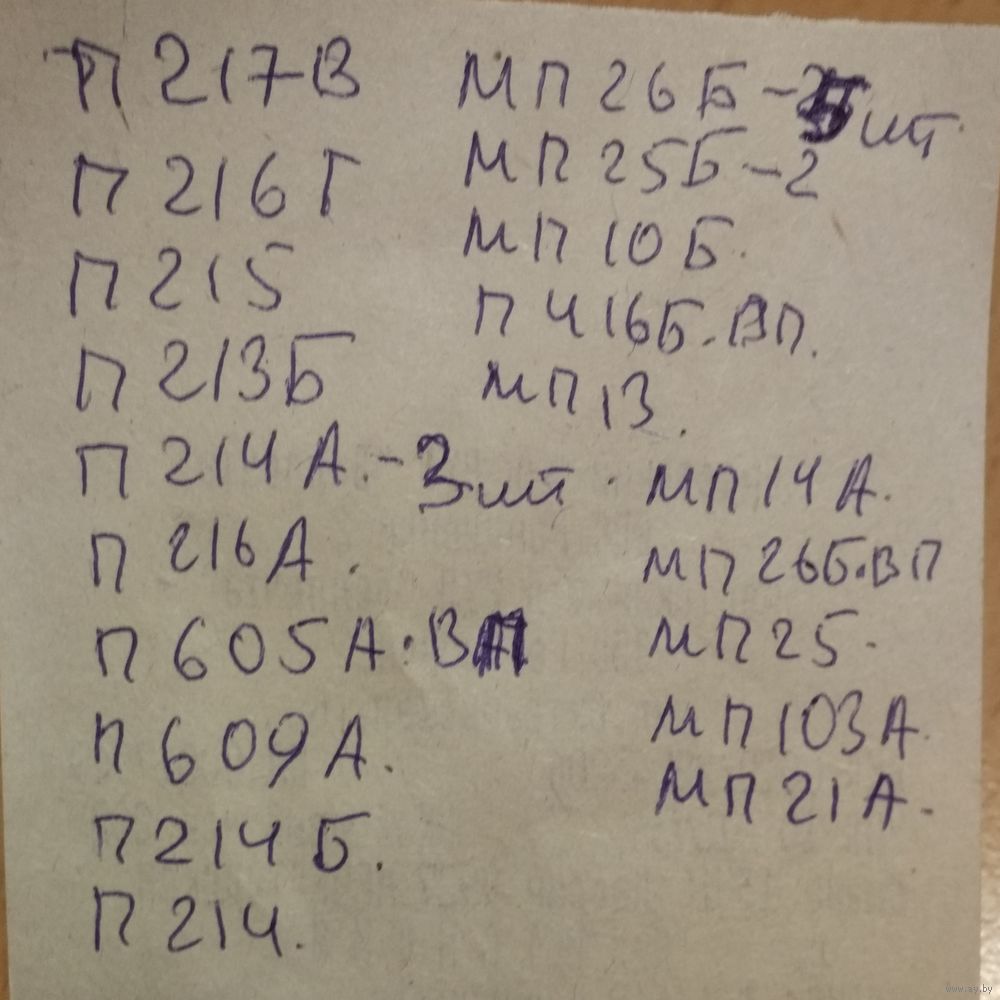 П 217В
П 216 Г
П 215
П 213Б
П 214 А. - 3 шт.
П 216 А.
П 605 А. ВП
П 609 А.
П 214 Б.
П 214.
МП 26 Б - 5 шт.
МП 25Б - 2
МП 10 Б.
П 416Б. ВП.
МП 13.
МП 14 А.
МП 26Б. ВП
МП 25.
МП 103 А.
МП 21 А.
www.ay.by